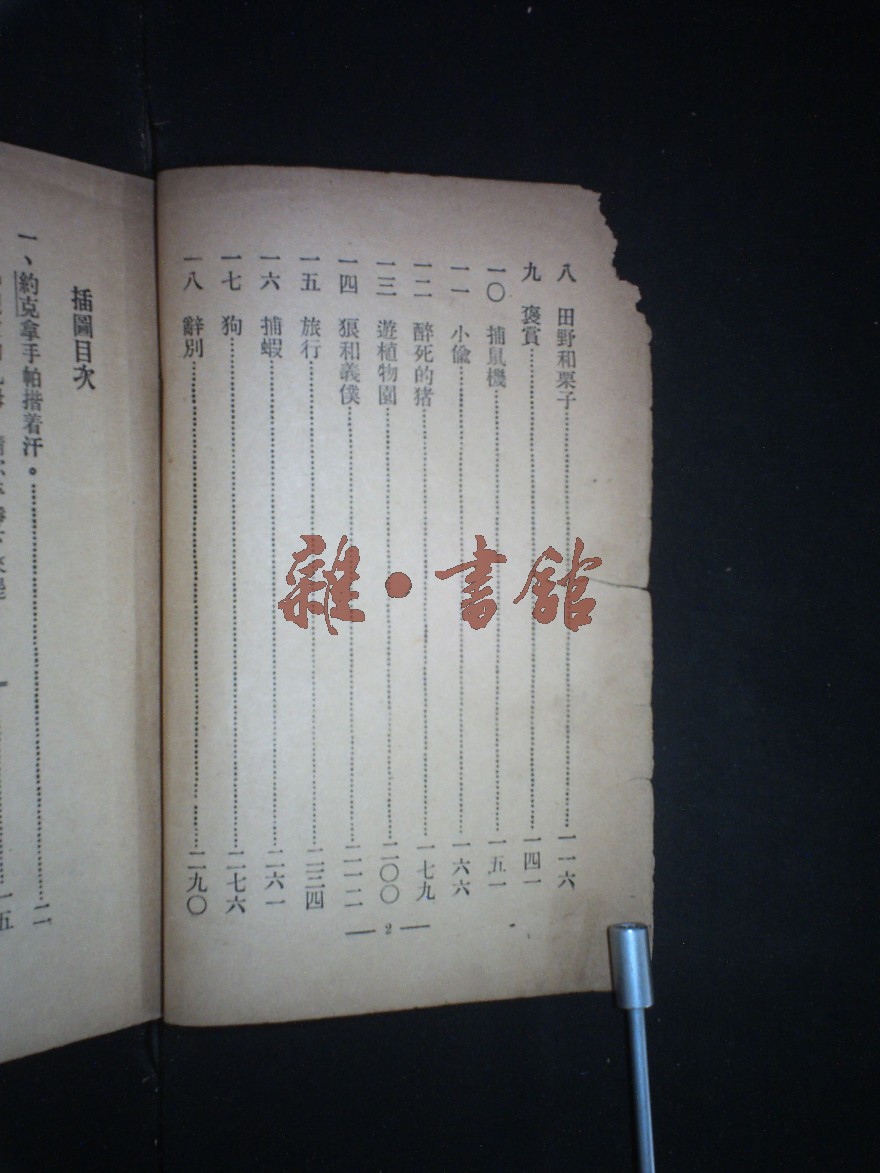 八 田野和栗子 一一六
九 褒賞 一四一
一〇 捕鼠機 一五一
一一 小偸 一六六
一二 醉死的猪 一七九
一三 遊植物園 二〇〇
一四 狼和義僕 二一二
一五 旅行 二三四
一六 捕蝦 二六一
一七 狗 二七六
一八 辭別 二九〇
2
插圖目次
一、約克拿手帕揩着汗。 二
一五
雜•書館